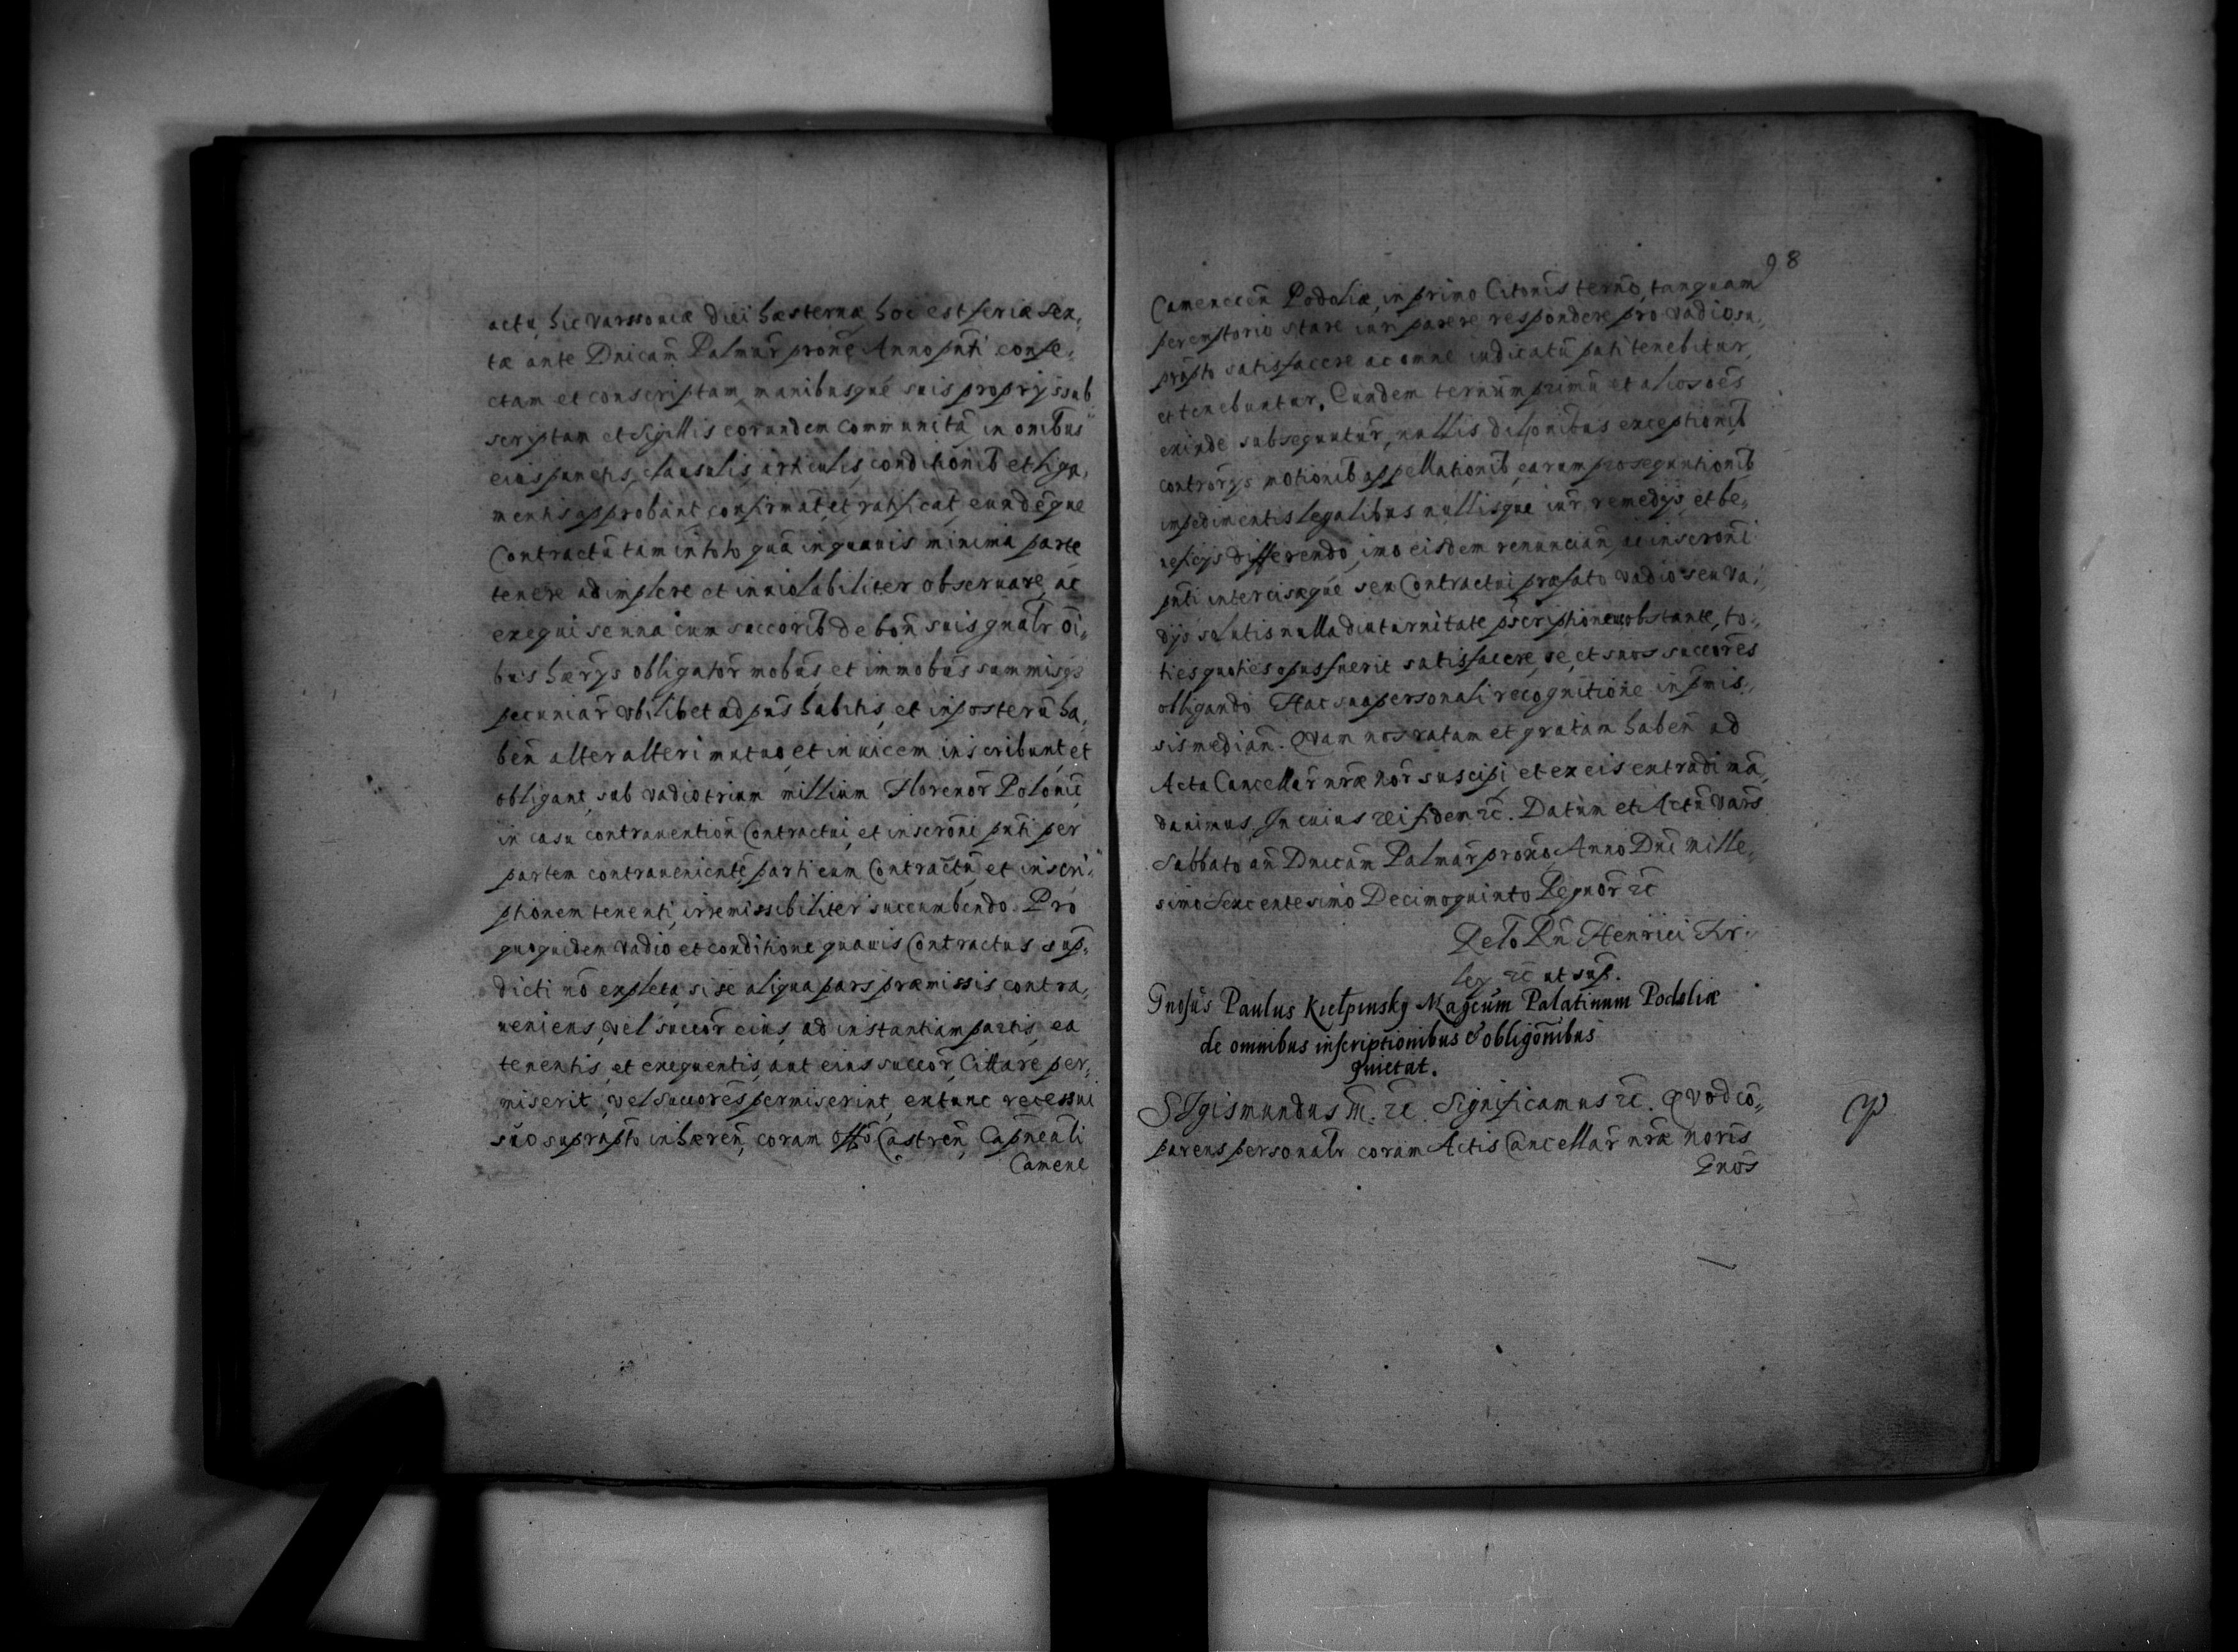 actu hic Varssouiæ diei hæsternæ hoc est feria sex,
tæ ante Dnicam̃ Palmar̃ proñe Anno pñti confe,
ctam et conscriptam manibusqué suis proprijs sub
scriptam et sigillis eorundem communitã in omibus
eius punctis, clausulis, articulis, conditionib et liga,
mentis approbant, confirmat, et ratificat, eundẽque
Contractũ tam in toto quã in quauis minima parte
tenere adimplere et inuiolabiliter obseruare, ac
exequi se una cum succorib de boñ suis gnalr õi,
bus hærijs obligator̃ mobus, et immobus summisq3
pecuniar̃ vbilibet ad pñs habitis, et in posterũ ha,
beñ alter alteri mutuo, et inuicem inscribunt, et
obligant, sub vadio trium millium Florenor̃ Polonic̃
in casu contrauention Contractui, et inscroñi pñti per
partem contrauenientẽ parti eum Contractũ et inscri,
ptionem tenenti, irremissibiliter succumbendo. Pro
quoquidem vadio et conditione quauis Contractus sup,
dicti nõ expleta, si se aliqua pars præmissis contra,
ueniens, vel succor̃ eius, ad instantiam partis, ea
tenentis, et exequentis, aut eius succor̃, Cittare per,
miserit, vel succorẽs permiserint, extunc recessui
suo suprapto inhæreñ, coram offo Castreñ Capneali
Camene
98
Cameneceñ Podoliæ, in primo Citonis terno, tanquam
peremptorio stare iuri parere respondere, pro vadio su,
prapto satisfacere ac omne iudicatũ pati tenebitur,
et tenebuntur. Eundem ternum primũ et alios oẽs
exinde subsequutur̃, nullis dilonibus exceptionib
controrijs motionib appellationib, earum prosequutionib
impedimentis legalibus nullisque iur̃ remedijs, et be,
neficijs differendo, imo eisdem renuncian̄, ac inscroñi
pñti intercisæqué seu Contractui præfato vadio seu va,
dijs solutis nulla diuturnitate pscriptione obstante, to,
ties quoties opus fuerit satisfacere, se, et suos succorẽs
obligando Hac sua personali recognitione in pmis,
sis median̄. Quam nos ratam et gratam habeñ ad
Acta Cancellar̃ nræ hor̃ suscipi, et ex eis extradi mã,
dauimus. In cuius rei fidem 2c̃. Datum et Actũ Vars
Sabbato añ Dnicam̃ Palmar̃ proño, Anno Dni Mille,
simo Sexcentesimo Decimoquinto Regnor̃ 2c̃
Relo Rñ Henrici Fir,
ley 2c̃ ut sup̃.
Gnosus Paulus Kiełpinsky Magcum Palatinum Podoliæ
de omnibus inscriptionibus & obligonibus
quietat.
SIgismundus III. 2c̃. Significamus 2c̃. Quod cõ,
parens personalr coram Actis Cancellar̃ nræ noris
Gnos